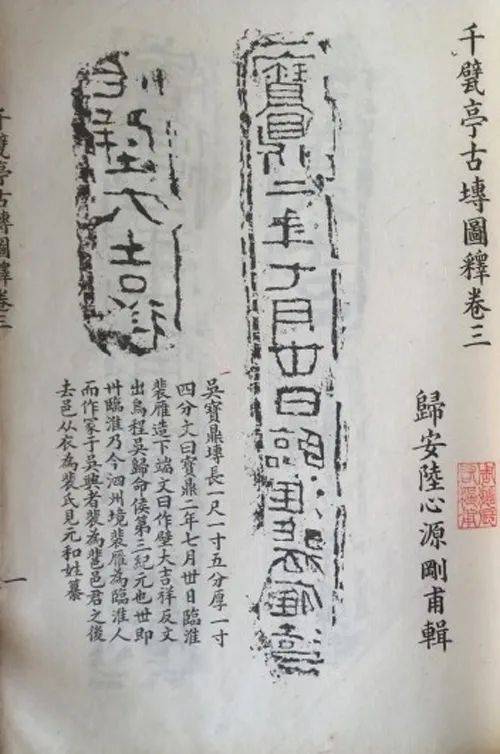 千甓亭古塼圖釋卷三
歸安陸心源剛甫輯
寶鼎二年七月丗日臨淮裴雁造
作壁大吉祥
吳寶鼎塼長一尺一寸五分厚一寸
四分文曰寶鼎二年七月丗日臨淮
裴雁造下端文曰作壁大吉祥反文
出烏程吳歸命侯第三紀元也丗即
卅臨淮乃今泗州境裴雁為臨淮人
而作冢于吳興者裴為邑君之後
去邑从衣為裴氏見元和姓纂
千甓亭古塼圖釋卷三
一